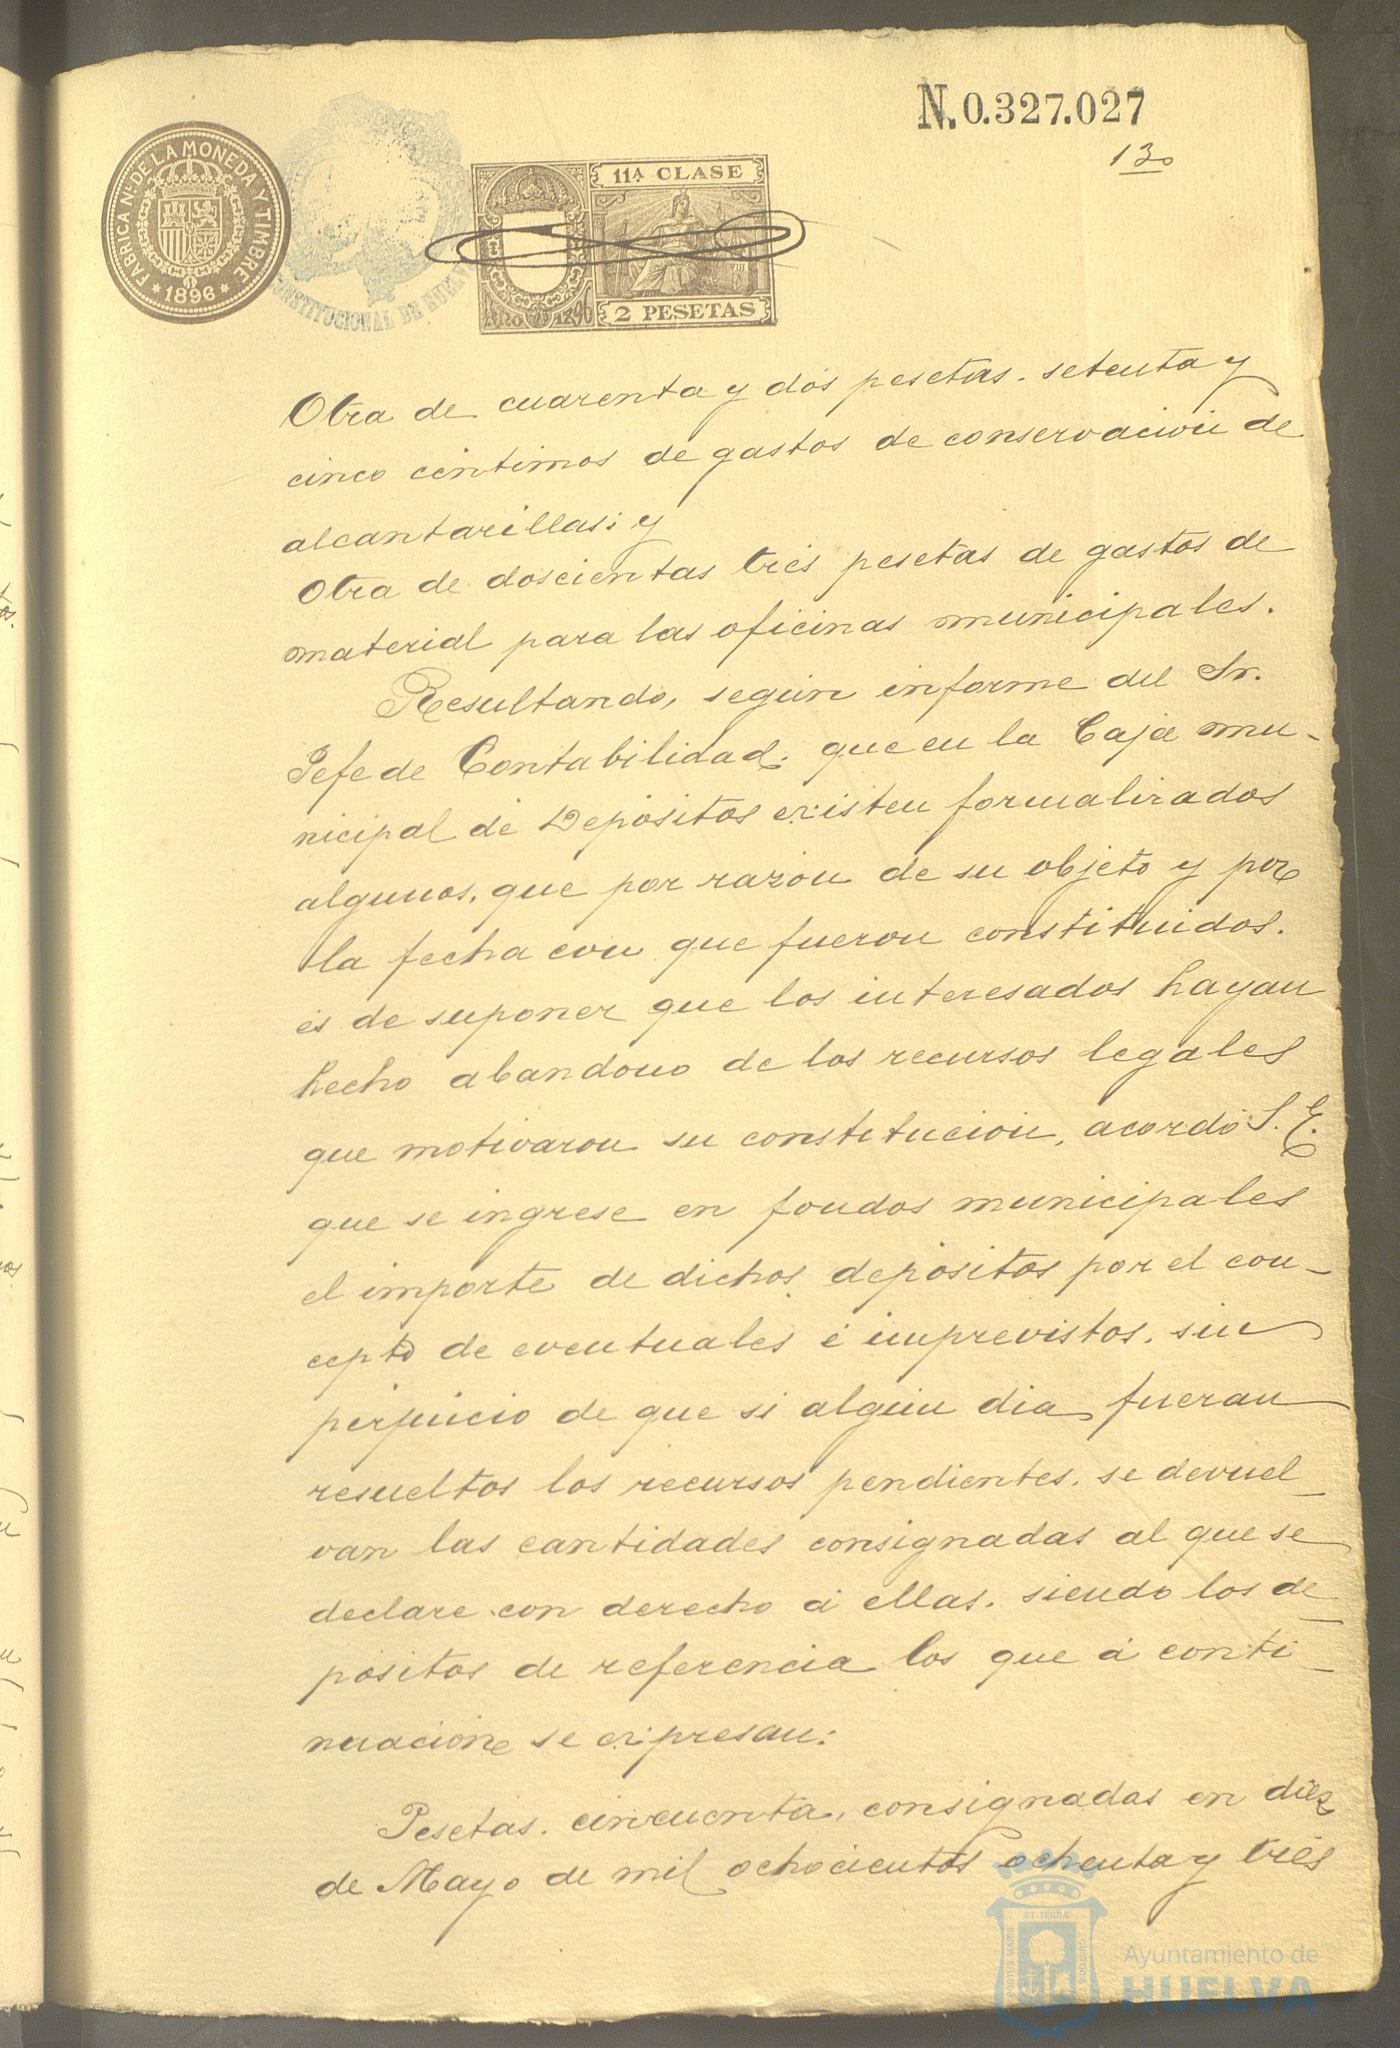 N. 0.327.027
130
FABRICA NL. DE LA MONEDA Y TIMBRE
* 1896 *
CONSTITUCIONAL DE HUELVA
11ª CLASE
2 PESETAS
Otra de cuarenta y dós pesetas. setenta y
cinco céntimos de gastos de conservación de
alcantarillas; y
Otra de doscientas trés pesetas de gastos de
material para las oficinas municipales.
Resultando, según informe del Sr.
Jefe de Contabilidad; que en la Caja mu-
nicipal de Depósitos existen formalizados
algunos, que por razón de su objeto y por
la fecha con que fueron constituidos.
és de suponer que los interesados hayan
hecho abandono de los recursos legales
que motivaron su constitución, acordó S. E.
que se ingrese en fondos municipales
el importe de dichos depósitos por el con-
cepto de eventuales é imprevistos. sin
perjuicio de que si algún dia fueran
resueltos los recursos pendientes. se devuel-
van las cantidades consignadas al que se
declare con derecho á ellas. siendo los de-
pósitos de referencia los que á conti-
nuación se expresan:
Pesetas. cincuenta, consignadas en diez
de Mayo de mil ochocientos ochenta y trés
Ayuntamiento de
HUELVA